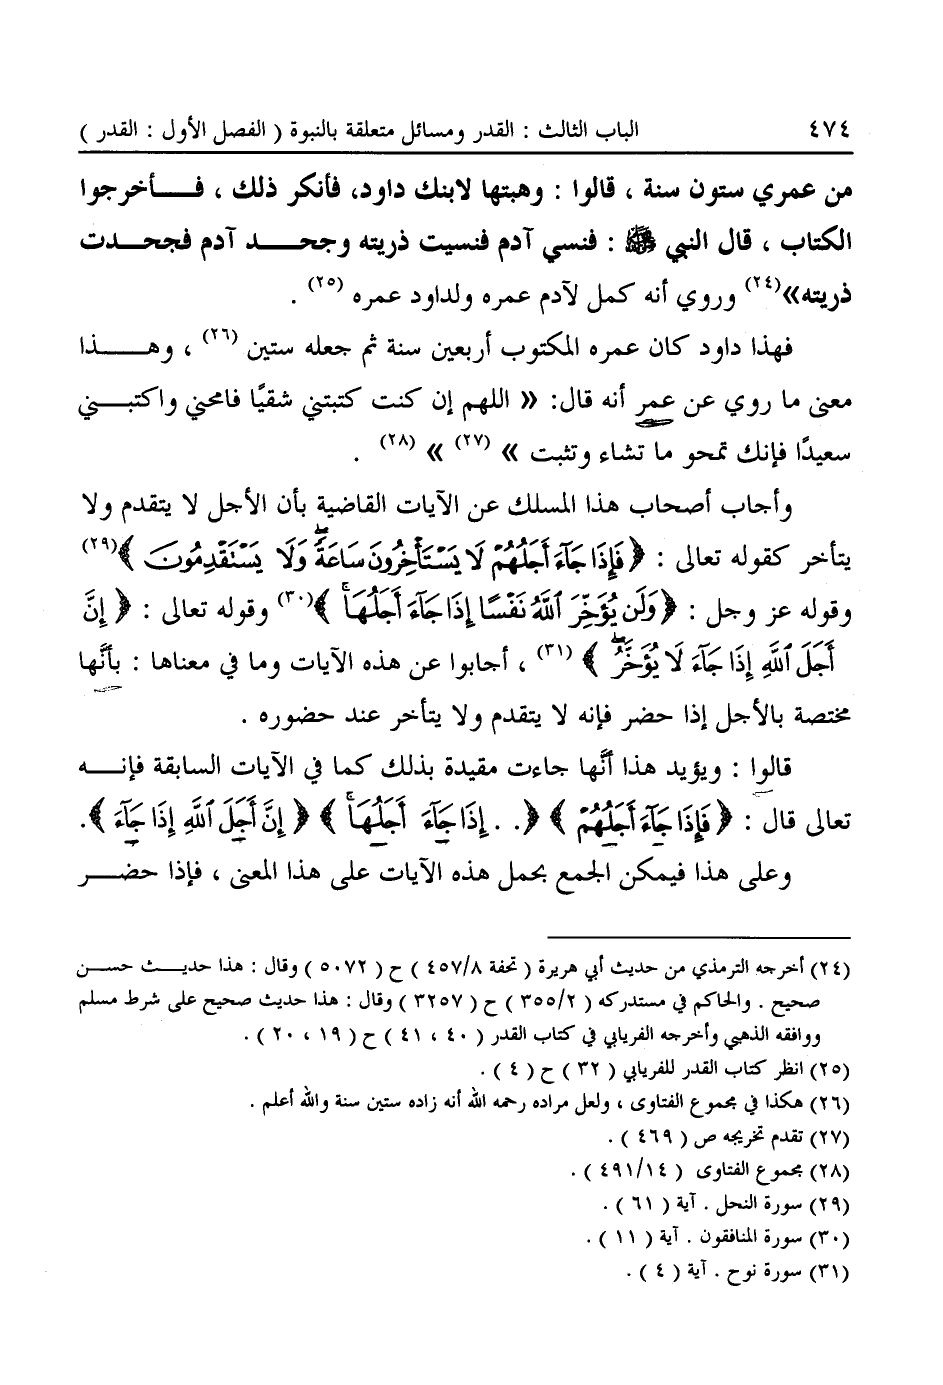 ٤٧٤ الباب الثالث : القدر ومسائل متعلقة بالنبوة ( الفصل الأول : القدر )
من عمري ستون سنة ، قالوا : وهبتها لابنك داود، فأنكر ذلك ، فـــأخرجوا
الكتاب ، قال النبي ﷺ : فنسي آدم فنسيت ذريته وجحـــد آدم فجحـدت
ذريته»(٢٤) وروي أنه كمل لآدم عمره ولداود عمره (٢٥) .
فهذا داود كان عمره المكتوب أربعين سنة ثم جعله ستين (٢٦) ، وهـــذا
معنى ما روي عن عمر أنه قال: « اللهم إن كنت كتبتني شقيًا فامحني واكتبـــني
سعيدًا فإنك تمحو ما تشاء وتثبت » (٢٧) » (٢٨) .
وأجاب أصحاب هذا المسلك عن الآيات القاضية بأن الأجل لا يتقدم ولا
يتأخر كقوله تعالى : ﴿ فَإِذَا جَآءَ أَجَلُهُمْ لَا يَسْتَـْٔخِرُونَ سَاعَةً ۖ وَلَا يَسْتَقْدِمُونَ ﴾(٢٩)
وقوله عز وجل : ﴿ وَلَن يُؤَخِّرَ ٱللَّهُ نَفْسًا إِذَا جَآءَ أَجَلُهَا ۚ ﴾(٣٠) وقوله تعالى : ﴿ إِنَّ
أَجَلَ ٱللَّهِ إِذَا جَآءَ لَا يُؤَخَّرُ ۖ ﴾ (٣١) ، أجابوا عن هذه الآيات وما في معناها : بأنَّها
مختصة بالأجل إذا حضر فإنه لا يتقدم ولا يتأخر عند حضوره .
قالوا : ويؤيد هذا أنَّها جاءت مقيدة بذلك كما في الآيات السابقة فإنـــه
تعالى قال : ﴿ فَإِذَا جَآءَ أَجَلُهُمْ ﴾ ﴿. . إِذَا جَآءَ أَجَلُهَا ۚ ﴾ ﴿ إِنَّ أَجَلَ ٱللَّهِ إِذَا جَآءَ ﴾.
وعلى هذا فيمكن الجمع بحمل هذه الآيات على هذا المعنى ، فإذا حضـــر
(٢٤) أخرجه الترمذي من حديث أبي هريرة ( تحفة ٤٥٧/٨ ) ح ( ٥٠٧٢ ) وقال : هذا حديـــث حســن
صحيح . والحاكم في مستدركه ( ٣٥٥/٢ ) ح ( ٣٢٥٧ ) وقال : هذا حديث صحيح على شرط مسلم
ووافقه الذهبي وأخرجه الفريابي في كتاب القدر ( ٤٠ ، ٤١ ) ح ( ١٩ ، ٢٠ ) .
(٢٥) انظر كتاب القدر للفريابي ( ٣٢ ) ح ( ٤ ) .
(٢٦) هكذا في مجموع الفتاوى ، ولعل مراده رحمه الله أنه زاده ستين سنة والله أعلم .
(٢٧) تقدم تخريجه ص ( ٤٦٩ ) .
(٢٨) مجموع الفتاوى ( ٤٩١/١٤ ) .
(٢٩) سورة النحل . آية ( ٦١ ) .
(٣٠) سورة المنافقون . آية ( ١١ ) .
(٣١) سورة نوح . آية ( ٤ ) .